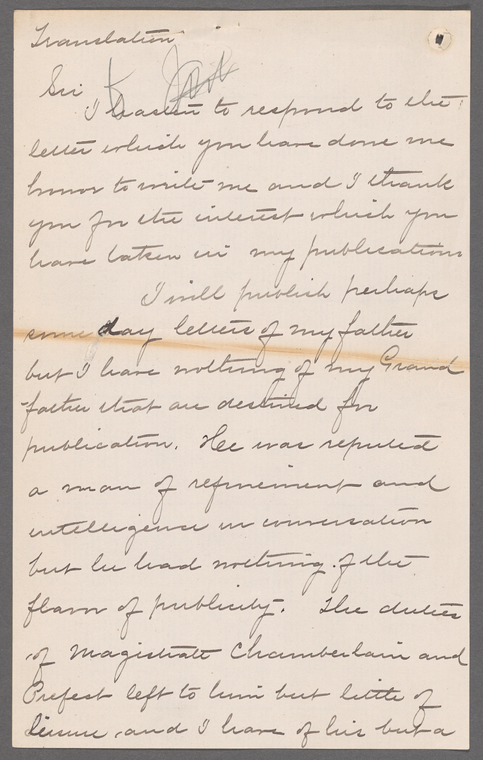 Translation
Sir
I hasten to respond to the
letter which you have done me
honor to write me and I thank
you for the interest which you
have taken in my publications
I will publish perhaps
some day letters of my father
but I have nothing of my Grand
father that are destined for
publication. He was reputed
a man of refinement and
intelligence in conversation
but he had nothing of the
flavor of publicity. The duties
of Magistrate Chamberlain and
Prefest left to him but little of
leisure, and I have of his but a